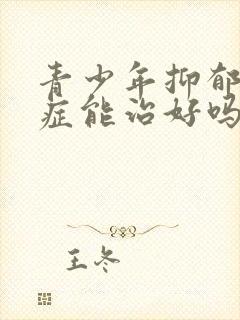 青少年抑郁
症能治好吗
王冬